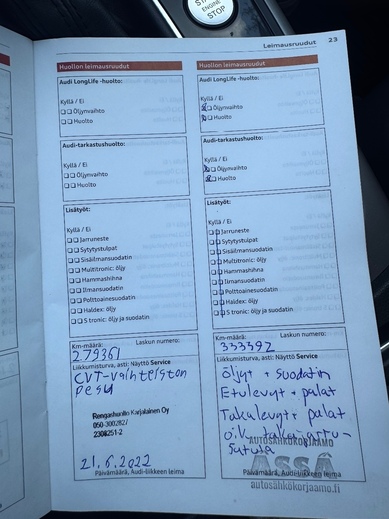 START
ENGINE
STOP
Leimausruudut 23
Huollon leimausruudut
Audi LongLife -huolto:
Kyllä / Ei
Öljynvaihto
Huolto
Audi-tarkastushuolto:
Kyllä / Ei
Öljynvaihto
Huolto
Lisätyöt:
Kyllä / Ei
Jarruneste
Sytytystulpat
Sisäilmansuodatin
Multitronic: öljy
Hammashihna
Ilmansuodatin
Polttoainesuodatin
Haldex: öljy
S tronic: öljy ja suodatin
Km-määrä: Laskun numero:
279361
Liikkumisturva, asti: Näyttö Service
CVT-vaihteiston
pesu
Rengashuolto Karjalainen Oy
050-300282/
2308251-2
21.6.2022
Päivämäärä, Audi-liikkeen leima
Huollon leimausruudut
Audi LongLife -huolto:
Kyllä / Ei
Öljynvaihto
Huolto
Audi-tarkastushuolto:
Kyllä / Ei
Öljynvaihto
Huolto
Lisätyöt:
Kyllä / Ei
Jarruneste
Sytytystulpat
Sisäilmansuodatin
Multitronic: öljy
Hammashihna
Ilmansuodatin
Polttoainesuodatin
Haldex: öljy
S tronic: öljy ja suodatin
Km-määrä: Laskun numero:
333392
Liikkumisturva, asti: Näyttö Service
öljyt + suodatin
Etulevyt + palat
Takalevyt + palat
oik. taka
AUTOSÄHKÖKORJAAMO
ASSÄ
Päivämäärä, Audi-liikkeen leima
autosähkökorjaamo.fi